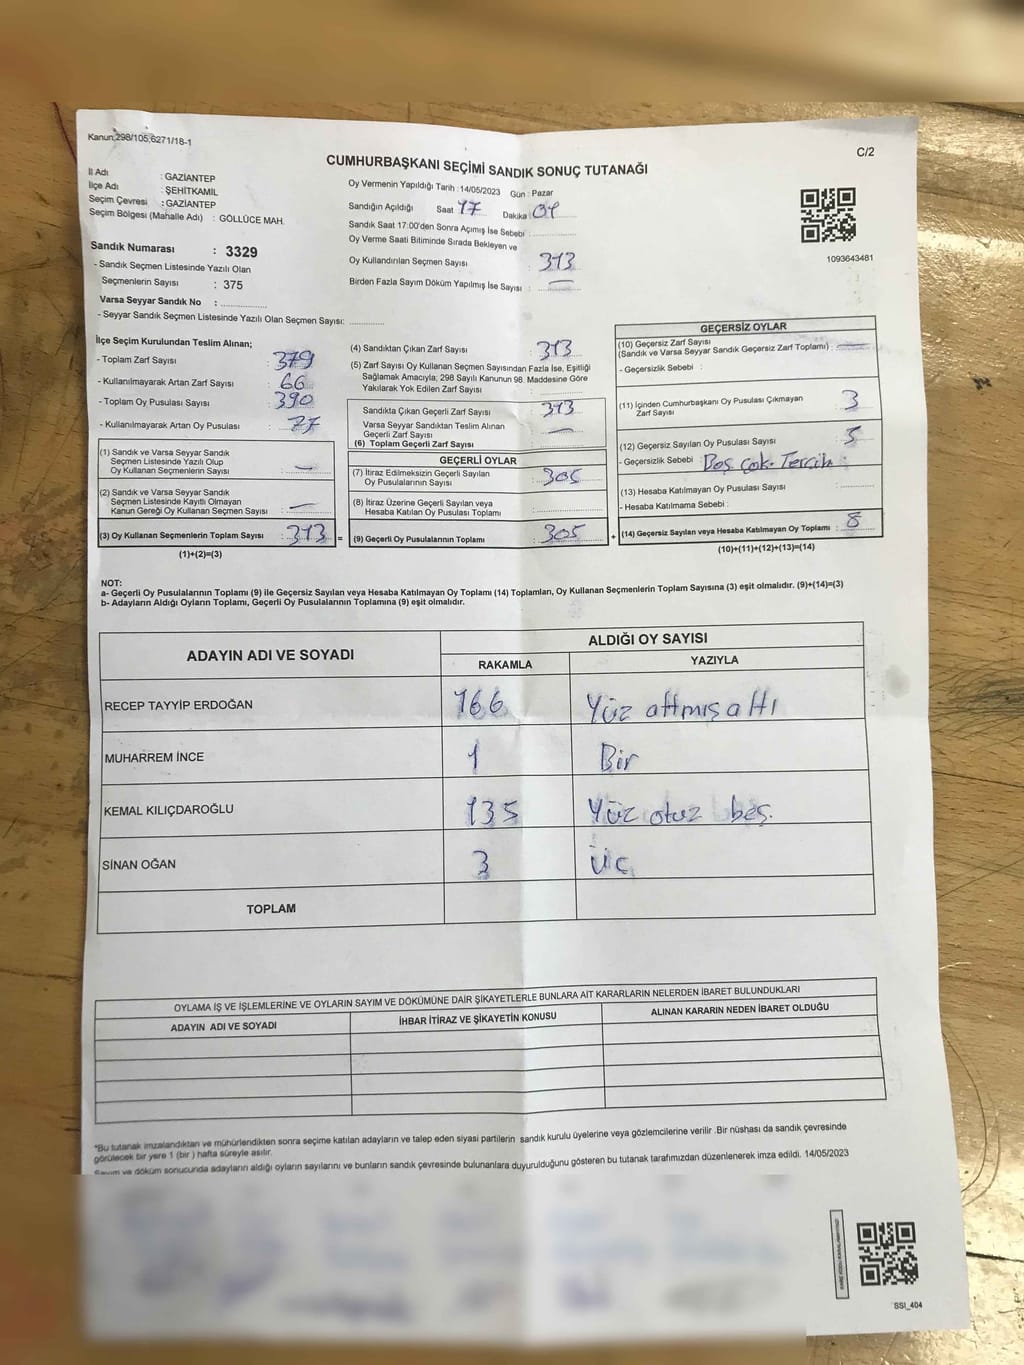 Kanun;298/105;6271/18-1
C/2
CUMHURBAŞKANI SEÇİMİ SANDIK SONUÇ TUTANAĞI
İl Adı : GAZİANTEP
İlçe Adı : ŞEHİTKAMİL
Seçim Çevresi : GAZİANTEP
Seçim Bölgesi (Mahalle Adı) : GÖLLÜCE MAH.
Sandık Numarası : 3329
- Sandık Seçmen Listesinde Yazılı Olan
Seçmenlerin Sayısı : 375
Varsa Seyyar Sandık No : ..............
- Seyyar Sandık Seçmen Listesinde Yazılı Olan Seçmen Sayısı: ............
Oy Vermenin Yapıldığı Tarih : 14/05/2023 Gün : Pazar
Sandığın Açıldığı Saat 17 Dakika
Sandık Saat 17:00'den Sonra Açımış İse Sebebi : ..............
Oy Verme Saati Bitiminde Sırada Bekleyen ve
Oy Kullandırılan Seçmen Sayısı : 313
Birden Fazla Sayım Döküm Yapılmış İse Sayısı : —
1093643481
İlçe Seçim Kurulundan Teslim Alınan;
- Toplam Zarf Sayısı : 379
- Kullanılmayarak Artan Zarf Sayısı : 66
- Toplam Oy Pusulası Sayısı : 390
- Kullanılmayarak Artan Oy Pusulası : 77
(1) Sandık ve Varsa Seyyar Sandık
Seçmen Listesinde Yazılı Olup
Oy Kullanan Seçmenlerin Sayısı : —
(2) Sandık ve Varsa Seyyar Sandık
Seçmen Listesinde Kayıtlı Olmayan
Kanun Gereği Oy Kullanan Seçmen Sayısı : —
(3) Oy Kullanan Seçmenlerin Toplam Sayısı : 313 =
(1)+(2)=(3)
(4) Sandıktan Çıkan Zarf Sayısı : 313
(5) Zarf Sayısı Oy Kullanan Seçmen Sayısından Fazla İse, Eşitliği
Sağlamak Amacıyla; 298 Sayılı Kanunun 98. Maddesine Göre
Yakılarak Yok Edilen Zarf Sayısı : ..............
Sandıkta Çıkan Geçerli Zarf Sayısı : 313
Varsa Seyyar Sandıktan Teslim Alınan
Geçerli Zarf Sayısı : —
(6) Toplam Geçerli Zarf Sayısı : ..............
GEÇERLİ OYLAR
(7) İtiraz Edilmeksizin Geçerli Sayılan
Oy Pusulalarının Sayısı : 305
(8) İtiraz Üzerine Geçerli Sayılan veya
Hesaba Katılan Oy Pusulası Toplamı : ..............
(9) Geçerli Oy Pusulalarının Toplamı : 305 +
GEÇERSİZ OYLAR
(10) Geçersiz Zarf Sayısı
(Sandık ve Varsa Seyyar Sandık Geçersiz Zarf Toplamı) : —
- Geçersizlik Sebebi :
(11) İçinden Cumhurbaşkanı Oy Pusulası Çıkmayan
Zarf Sayısı : 3
(12) Geçersiz Sayılan Oy Pusulası Sayısı : 5
- Geçersizlik Sebebi : Boş çok Tercih
(13) Hesaba Katılmayan Oy Pusulası Sayısı : ..............
- Hesaba Katılmama Sebebi :
(14) Geçersiz Sayılan veya Hesaba Katılmayan Oy Toplamı : 8
(10)+(11)+(12)+(13)=(14)
NOT:
a- Geçerli Oy Pusulalarının Toplamı (9) ile Geçersiz Sayılan veya Hesaba Katılmayan Oy Toplamı (14) Toplamları, Oy Kullanan Seçmenlerin Toplam Sayısına (3) eşit olmalıdır. (9)+(14)=(3)
b- Adayların Aldığı Oyların Toplamı, Geçerli Oy Pusulalarının Toplamına (9) eşit olmalıdır.
ADAYIN ADI VE SOYADI
ALDIĞI OY SAYISI
RAKAMLA YAZIYLA
RECEP TAYYİP ERDOĞAN 166 Yüz altmış altı
MUHARREM İNCE 1 Bir
KEMAL KILIÇDAROĞLU 135 Yüz otuz beş.
SİNAN OĞAN 3 üç
TOPLAM
OYLAMA İŞ VE İŞLEMLERİNE VE OYLARIN SAYIM VE DÖKÜMÜNE DAİR ŞİKAYETLERLE BUNLARA AİT KARARLARIN NELERDEN İBARET BULUNDUKLARI
ADAYIN ADI VE SOYADI İHBAR İTİRAZ VE ŞİKAYETİN KONUSU ALINAN KARARIN NEDEN İBARET OLDUĞU
*Bu tutanak imzalandıktan ve mühürlendikten sonra seçime katılan adayların ve talep eden siyasi partilerin sandık kurulu üyelerine veya gözlemcilerine verilir .Bir nüshası da sandık çevresinde
görülecek bir yere 1 (bir ) hafta süreyle asılır.
Sayım ve döküm sonucunda adayların aldığı oyların sayılarını ve bunların sandık çevresinde bulunanlara duyurulduğunu gösteren bu tutanak tarafımızdan düzenlenerek imza edildi. 14/05/2023
SSI_404